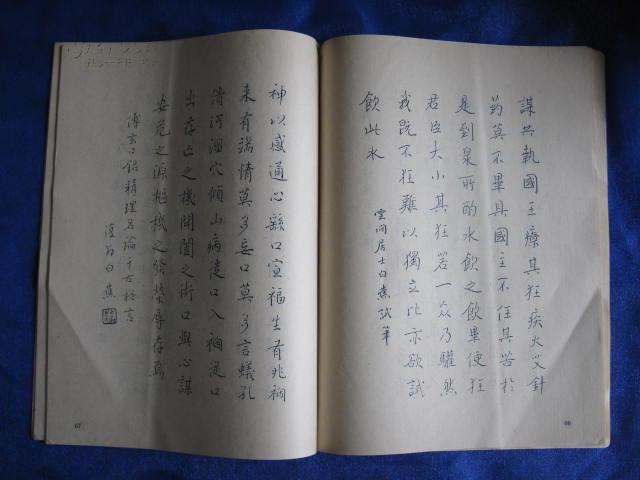 謀共執國主療其狂疾火艾針
药莫不畢具國主不任其苦於
是到泉所酌水飲之飲畢便狂
君臣大小其狂若一众乃驩然
我既不狂難以獨立此亦欲試
飲此水
雲間居士白蕉試筆
66
神以感通心繇口宣福生有兆禍
来有端情莫多妄口莫多言蟻孔
潰河溜穴傾山病從口入禍從口
出存亡之機開闔之術口與心謀
安危之源樞機之發榮辱存焉
傅玄口銘精理名論千古格言
白蕉
67